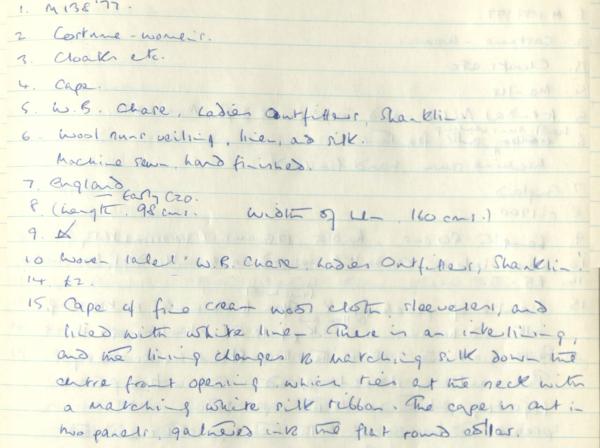 1. M138'77.
2 Costume - women's.
3. Cloaks etc.
4. Cape.
5. W.B. Chase, Ladies Outfitters, Shanklin
6. Wool nuns veiling, linen, and silk.
Machine sewn, hand finished.
7. England
— Early C20.
8. (Length. 98 cms. Width of hem 160 cms.)
9.
10 Woven label 'W.B. Chase, Ladies Outfitters, Shanklin.'
14. £2.
15. Cape of fine cream wool cloth, sleeveless, and
lined with white linen. There is an interlining,
and the lining changes to matching silk down the
centre front opening, which ties at the neck with
a matching white silk ribbon. The cape is cut in
two panels, gathered into the flat round collar.